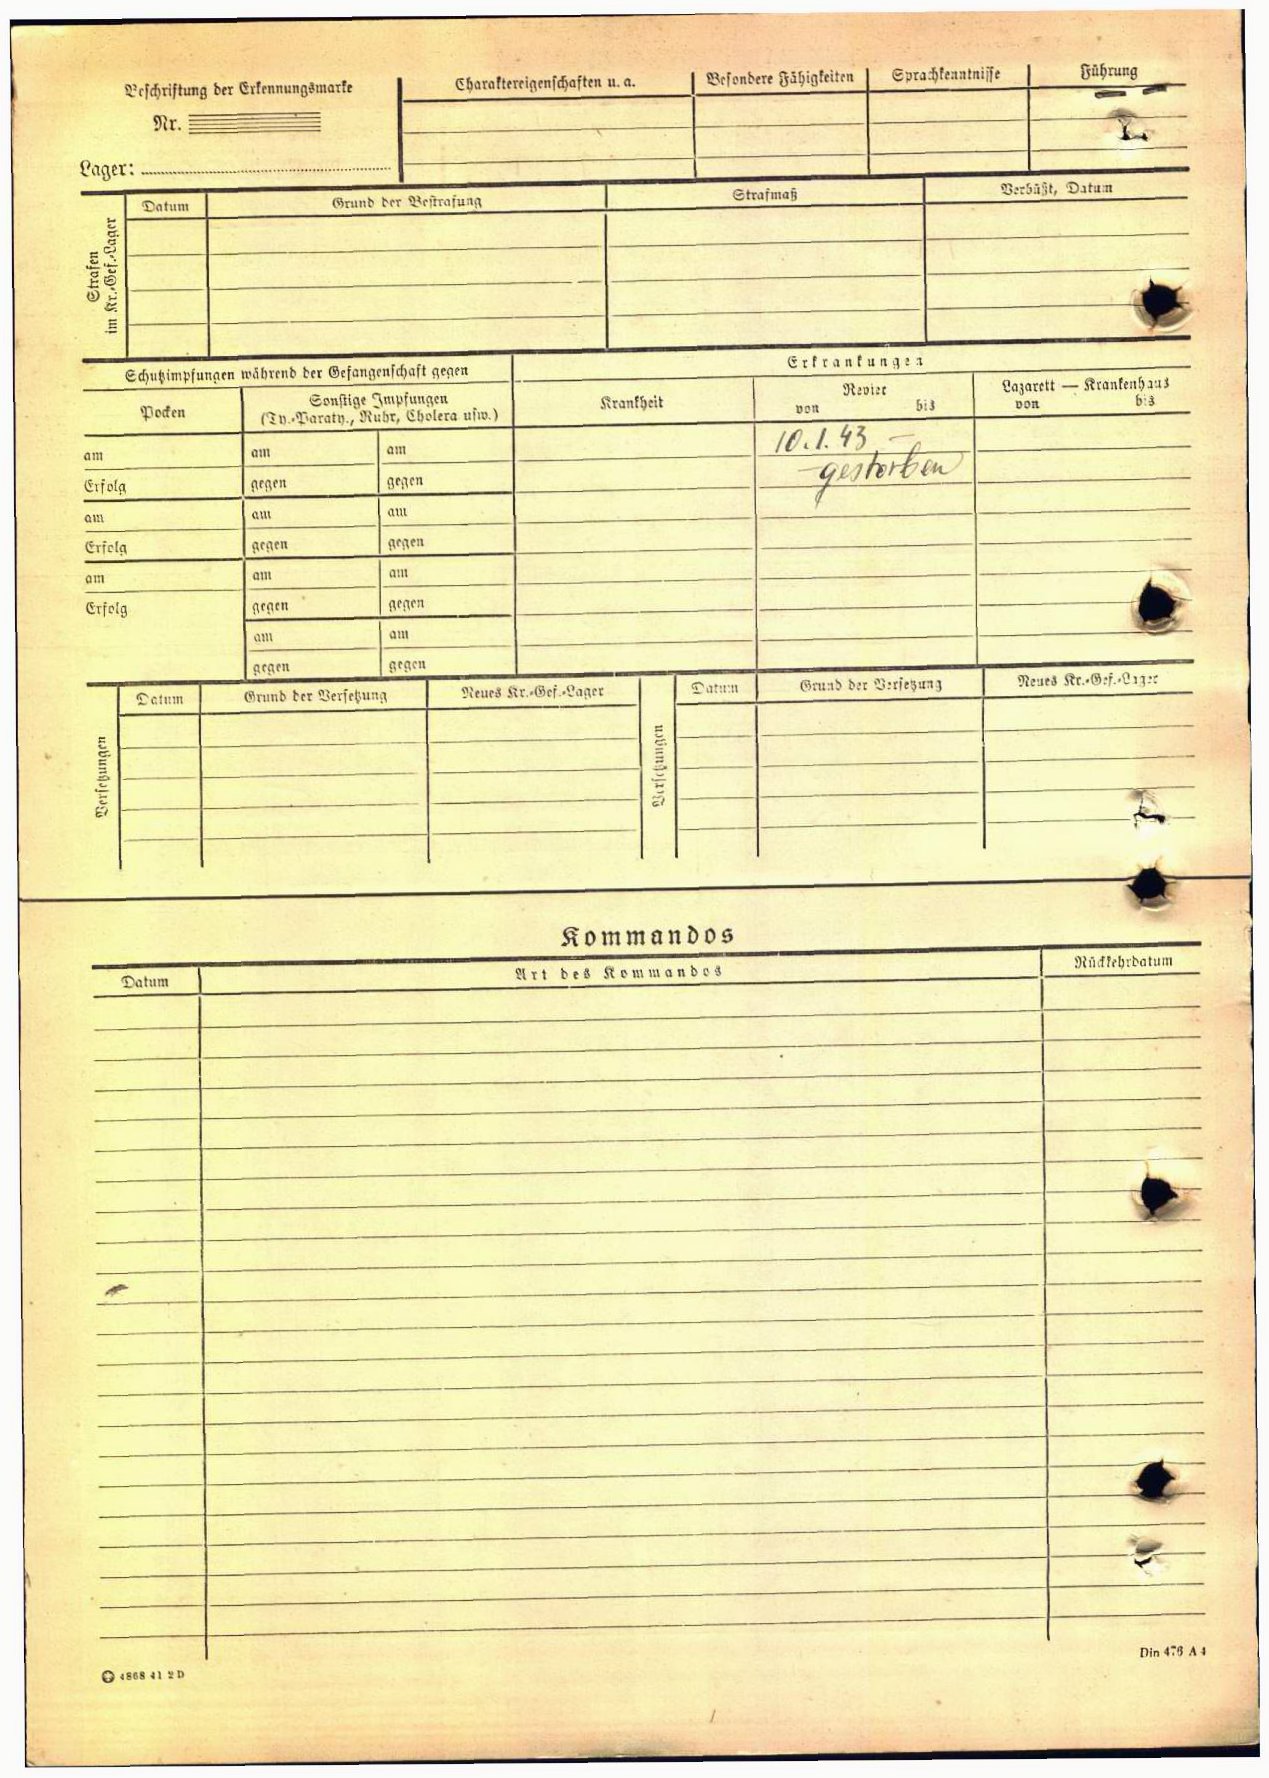 Beschriftung der Erkennungsmarke
Nr.
Lager:
Charaktereigenschaften u. a.
Besondere Fähigkeiten
Sprachkenntnisse
Führung
Strafen
im Kr.-Gef.-Lager
Datum
Grund der Bestrafung
Strafmaß
Verbüßt, Datum
Schutzimpfungen während der Gefangenschaft gegen
Erkrankungen
Pocken
Sonstige Impfungen
(Ty.-Paraty., Ruhr, Cholera usw.)
Krankheit
Revier
von bis
Lazarett — Krankenhaus
von bis
am am am
10.1.43 –
Erfolg gegen gegen
– gestorben
am am am
Erfolg gegen gegen
am am am
Erfolg gegen gegen
am am
gegen gegen
Versetzungen
Datum
Grund der Versetzung
Neues Kr.-Gef.-Lager
Versetzungen
Datum
Grund der Versetzung
Neues Kr.-Gef.-Lager
Kommandos
Datum
Art des Kommandos
Rückkehrdatum
4868 41 2 D
Din 476 A 4